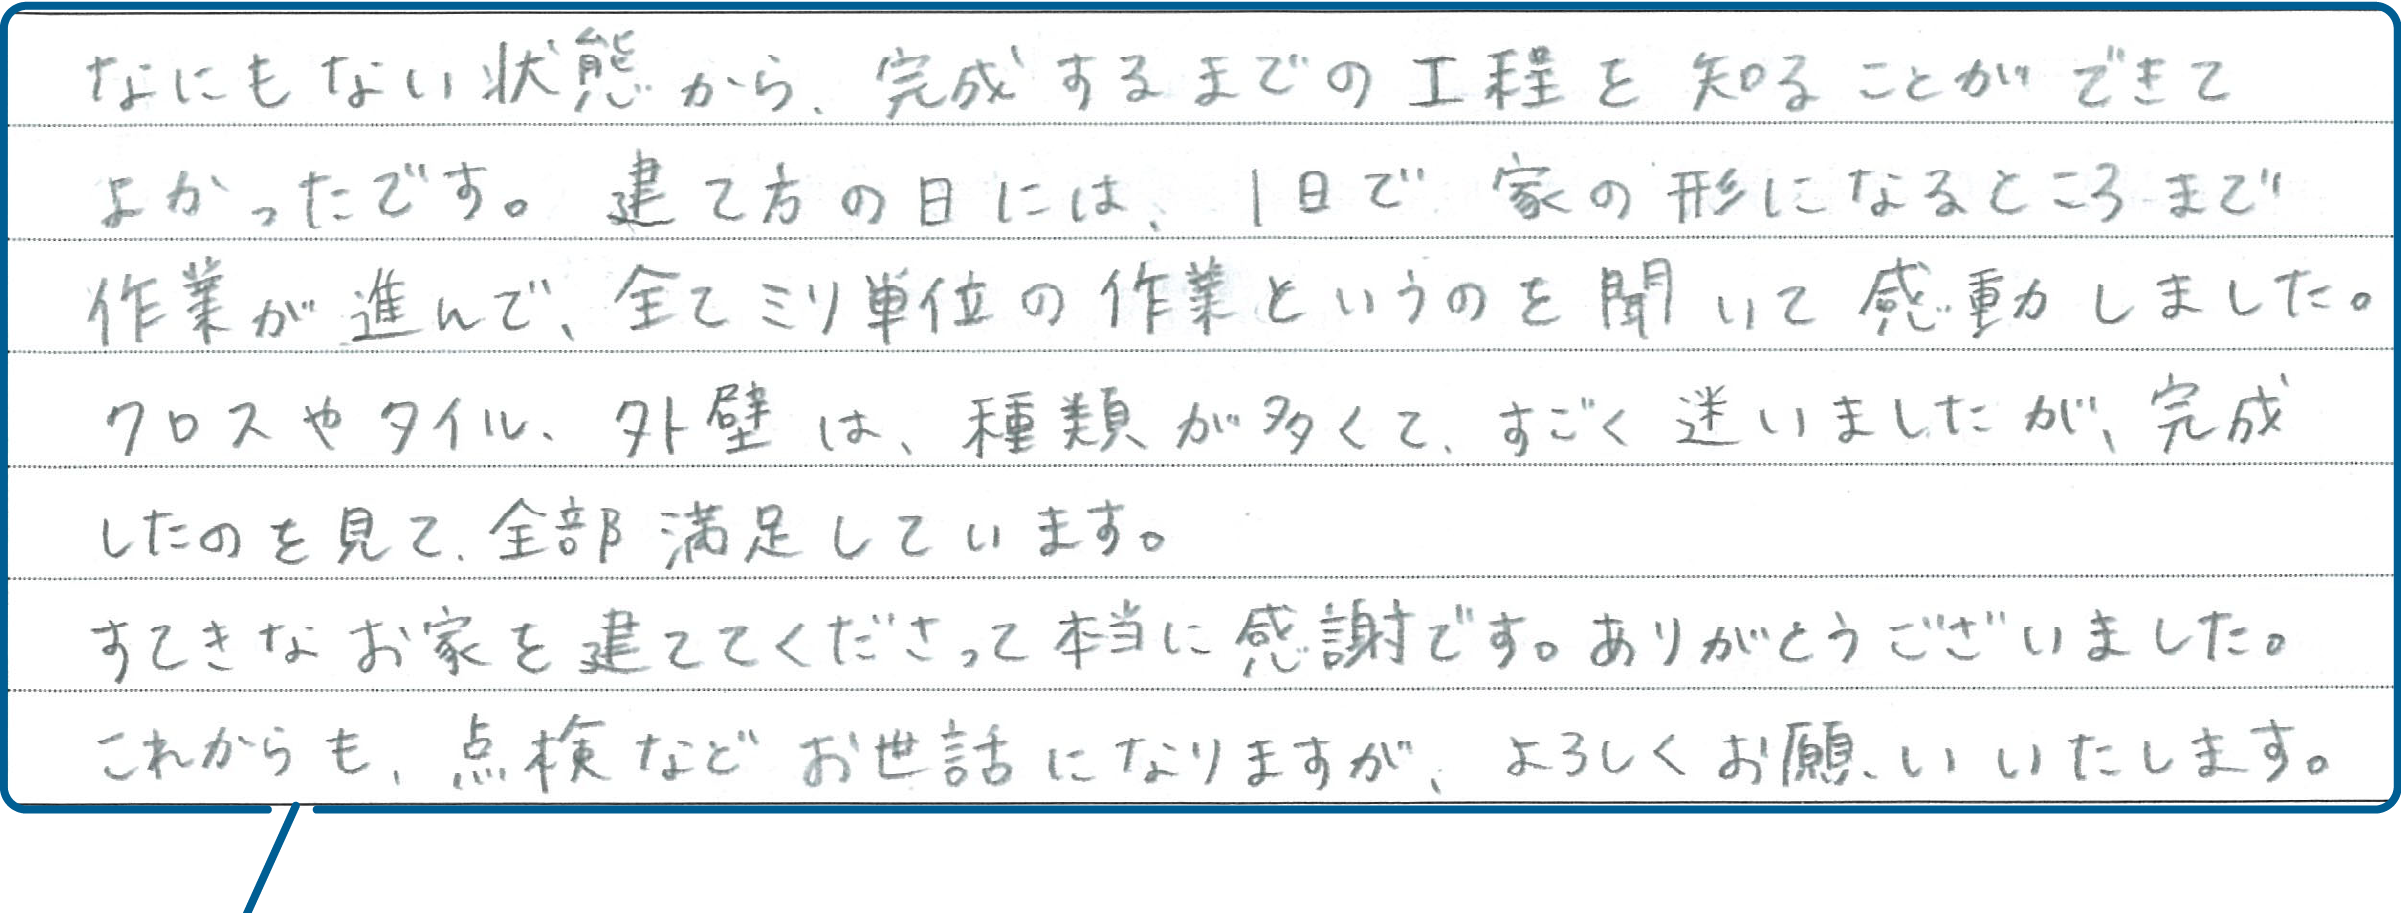 なにもない状態から、完成するまでの工程を知ることができて
よかったです。建て方の日には、1日で家の形になるところまで
作業が進んで、全てミリ単位の作業というのを聞いて感動しました。
クロスやタイル、外壁は、種類が多くて、すごく迷いましたが、完成
したのを見て、全部満足しています。
すてきなお家を建ててくださって本当に感謝です。ありがとうございました。
これからも、点検などお世話になりますが、よろしくお願いいたします。